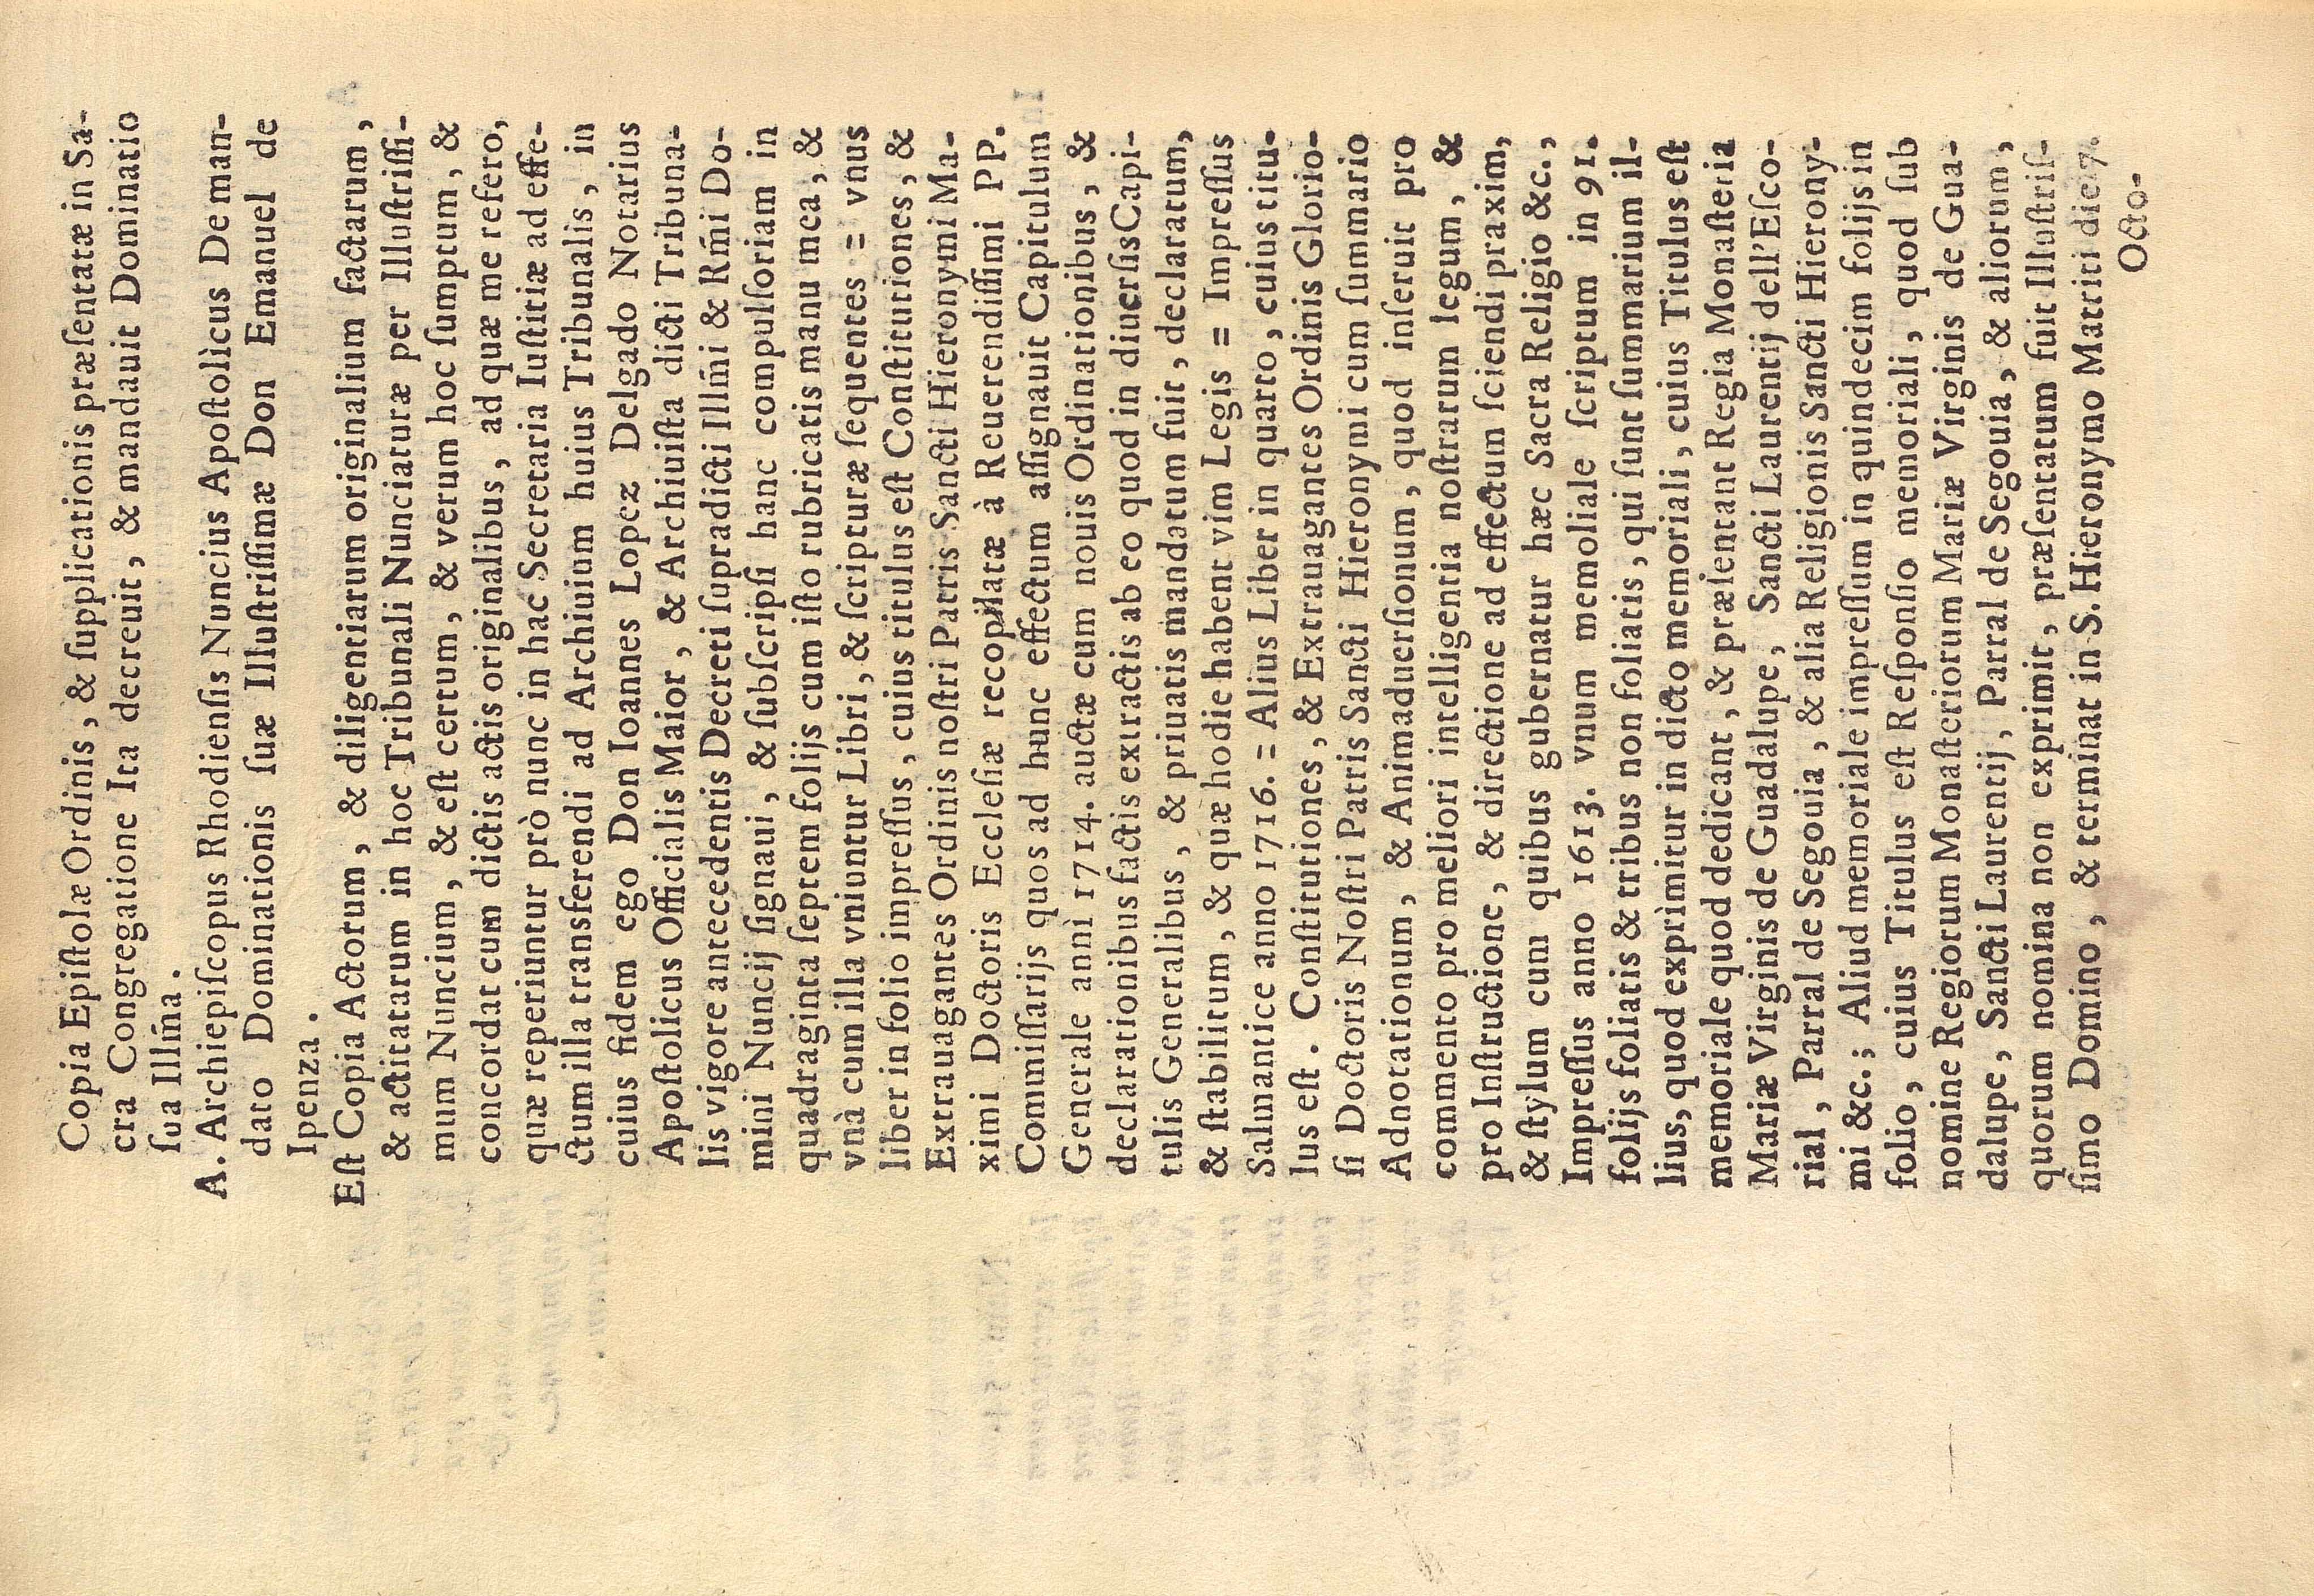 Copia Epiſtolæ Ordinis, & ſupplicationis præſentatæ in Sa-
cra Congregatione Ita decreuit, & mandauit Dominatio
ſua Illm̃a.
A. Archiepiſcopus Rhodienſis Nuncius Apoſtolìcus De man-
dato Dominationis ſuæ Illuſtriſſimæ Don Emanuel de
Ipenza.
Eſt Copia Actorum, & diligentiarum originalium factarum,
& actitatarum in hoc Tribunali Nunciaturæ per Illuſtriſſi-
mum Nuncium, & eſt certum, & verum hoc ſumptum, &
concordat cum dictis actis originalibus, ad quæ me refero,
quæ reperiuntur prò nunc in hac Secretaria Iuſtitiæ ad effe-
ctum illa transferendi ad Archiuium huius Tribunalis, in
cuius fidem ego Don Ioannes Lopez Delgado Notarius
Apoſtolicus Officialis Maior, & Archiuiſta dicti Tribuna-
lis vigore antecedentis Decreti ſupradicti Illm̃i & Rm̃i Do-
mini Nuncij ſignaui, & ſubſcripſi hanc compulſoriam in
quadraginta ſeptem folijs cum iſto rubricatis manu mea, &
vnà cum illa vniuntur Libri, & ſcripturæ ſequentes = vnus
liber in folio impreſſus, cuius titulus eſt Conſtitutiones, &
Extrauagantes Ordinis noſtri Patris Sancti Hieronymi Ma-
ximi Doctoris Eccleſiæ recopilatæ à Reuerendiſſimi PP.
Commiſſarijs quos ad hunc effectum aſſignauit Capitulum
Generale annì 1714. auctæ cum nouis Ordinationibus, &
declarationibus factis extractis ab eo quod in diuerſis Capi-
tulis Generalibus, & priuatis mandatum fuit, declaratum,
& ſtabilitum, & quæ hodie habent vim Legis = Impreſſus
Salmantice anno 1716. = Alius Liber in quarto, cuius titu-
lus eſt. Conſtitutiones, & Extrauagantes Ordinis Glorio-
ſi Doctoris Noſtri Patris Sancti Hieronymi cum ſummario
Adnotationum, & Animaduerſionum, quod inſeruit pro
commento pro meliori intelligentia noſtrarum legum, &
pro Inſtructione, & directione ad effectum ſciendi praxim,
& ſtylum cum quibus gubernatur hæc Sacra Religio &c.,
Impreſſus anno 1613. vnum memoliale ſcriptum in 91.
folijs foliatis & tribus non foliatis, qui ſunt ſummarium il-
lius, quod exprìmitur in dicto memoriali, cuius Titulus eſt
memoriale quod dedicant, & præſentant Regia Monaſteria
Mariæ Virginis de Guadalupe, Sancti Laurentij dell'Eſco-
rial, Parral de Segouia, & alia Religionis Sancti Hierony-
mi &c.; Aliud memoriale impreſſum in quindecim folijs in
folio, cuius Titulus eſt Reſponſio memoriali, quod ſub
nomine Regiorum Monaſteriorum Mariæ Virginis de Gua-
dalupe, Sancti Laurentij, Parral de Segouia, & aliorum,
quorum nomina non exprimit, præſentatum fuit Illuſtriſ-
ſimo Domino, & terminat in S. Hieronymo Matriti die 7.
Octo-